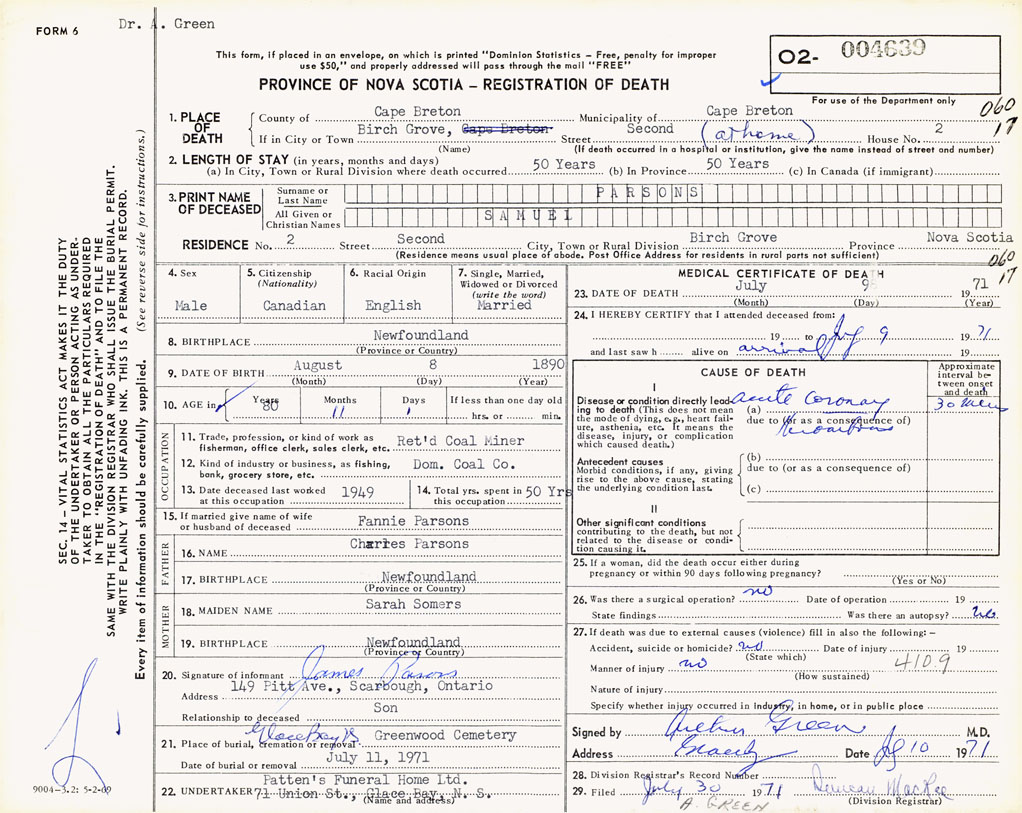 FORM 6
Dr. A. Green
This form, if placed in an envelope, on which is printed "Dominion Statistics – Free, penalty for improper
use $50," and properly addressed will pass through the mail "FREE"
PROVINCE OF NOVA SCOTIA – REGISTRATION OF DEATH
O2- 004639
For use of the Department only
060
17
1. PLACE OF DEATH
County of Cape Breton Municipality of Cape Breton
If in City or Town Birch Grove, Cape Breton Street Second (at home) House No. 2
(Name) (If death occurred in a hospital or institution, give the name instead of street and number)
2. LENGTH OF STAY (in years, months and days)
(a) In City, Town or Rural Division where death occurred 50 Years (b) In Province 50 Years (c) In Canada (if immigrant)
3. PRINT NAME OF DECEASED
Surname or Last Name PARSONS
All Given or Christian Names SAMUEL
RESIDENCE No. 2 Street Second City, Town or Rural Division Birch Grove Province Nova Scotia
(Residence means usual place of abode. Post Office Address for residents in rural parts not sufficient)
060
17
4. Sex
Male
5. Citizenship
(Nationality)
Canadian
6. Racial Origin
English
7. Single, Married,
Widowed or Divorced
(write the word)
Married
8. BIRTHPLACE Newfoundland
(Province or Country)
9. DATE OF BIRTH August 8 1890
(Month) (Day) (Year)
10. AGE in Years 80 Months 11 Days 1 If less than one day old
hrs. or min.
OCCUPATION
11. Trade, profession, or kind of work as
fisherman, office clerk, sales clerk, etc. Ret'd Coal Miner
12. Kind of industry or business, as fishing,
bank, grocery store, etc. Dom. Coal Co.
13. Date deceased last worked
at this occupation 1949
14. Total yrs. spent in
this occupation 50 Yrs
15. If married give name of wife
or husband of deceased Fannie Parsons
FATHER
16. NAME Charles Parsons
17. BIRTHPLACE Newfoundland
(Province or Country)
MOTHER
18. MAIDEN NAME Sarah Somers
19. BIRTHPLACE Newfoundland
(Province or Country)
20. Signature of informant James Parsons
Address 149 Pitt Ave., Scarbough, Ontario
Relationship to deceased Son
21. Place of burial, cremation or removal Glace Bay NS Greenwood Cemetery
Date of burial or removal July 11, 1971
22. UNDERTAKER Patten's Funeral Home Ltd.
71 Union St., Glace Bay, N. S.
(Name and address)
MEDICAL CERTIFICATE OF DEATH
23. DATE OF DEATH July 9 1971
(Month) (Day) (Year)
24. I HEREBY CERTIFY that I attended deceased from:
19 to July 9 1971
and last saw h alive on arrival 19
CAUSE OF DEATH
Approximate
interval be-
tween onset
and death
I
Disease or condition directly lead-
ing to death (This does not mean
the mode of dying, e.g., heart fail-
ure, asthenia, etc. It means the
disease, injury, or complication
which caused death.)
(a) acute Coronary 30 mins
due to (or as a consequence of)
Antecedent causes
Morbid conditions, if any, giving
rise to the above cause, stating
the underlying condition last.
(b)
due to (or as a consequence of)
(c)
II
Other significant conditions
contributing to the death, but not
related to the disease or condi-
tion causing it.
25. If a woman, did the death occur either during
pregnancy or within 90 days following pregnancy?
(Yes or No)
26. Was there a surgical operation? no Date of operation 19
State findings Was there an autopsy? no
27. If death was due to external causes (violence) fill in also the following: –
Accident, suicide or homicide? no Date of injury 19
(State which)
4109
Manner of injury no
(How sustained)
Nature of injury
Specify whether injury occurred in industry, in home, or in public place
Signed by Arthur Green M.D.
Address Date July 10 1971
28. Division Registrar's Record Number
29. Filed July 30 1971 Duncan MacRae
(Division Registrar)
A. GREEN
SEC. 14 – VITAL STATISTICS ACT MAKES IT THE DUTY
OF THE UNDERTAKER OR PERSON ACTING AS UNDER-
TAKER TO OBTAIN ALL THE PARTICULARS REQUIRED
IN THE "REGISTRATION OF DEATH" AND TO FILE THE
SAME WITH THE DIVISION REGISTRAR WHO SHALL ISSUE THE BURIAL PERMIT.
WRITE PLAINLY WITH UNFADING INK. THIS IS A PERMANENT RECORD.
Every item of information should be carefully supplied. (See reverse side for instructions.)
9004-3.2: 5-2-69